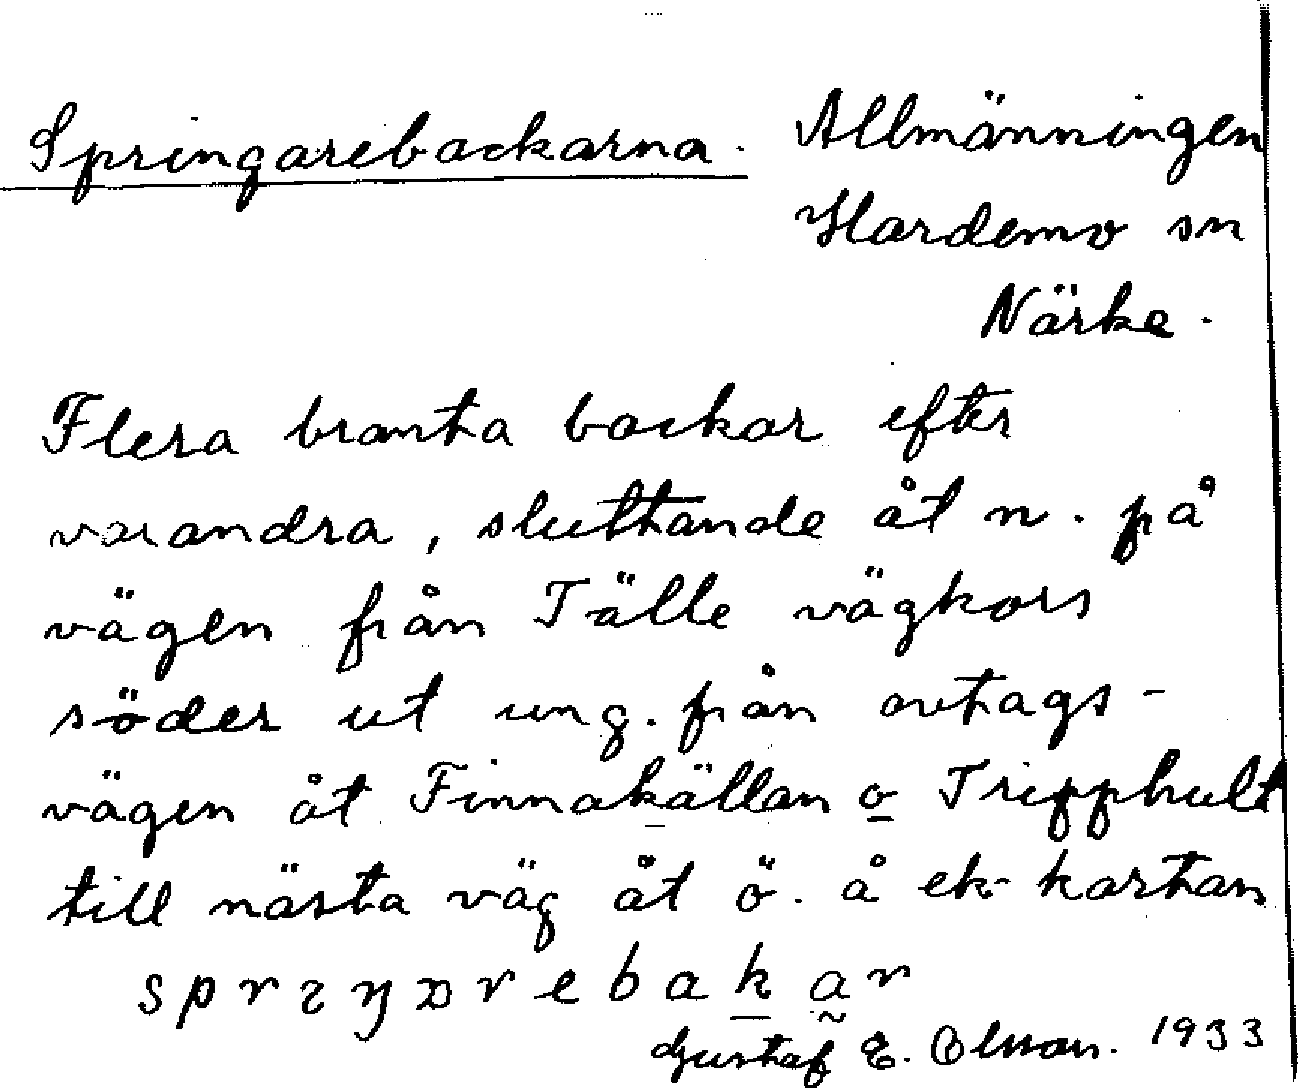 Springarebackarna. Allmänningen
Hardemo sn
Närke.
Flera branta backar efter
varandra, sluttande åt n. på
vägen från Tälle vägkors
söder ut ung. från avtags-
vägen åt Finnakällan o Tripphult
till nästa väg åt ö. å ek kartan
Gustaf E. Olsson. 1933